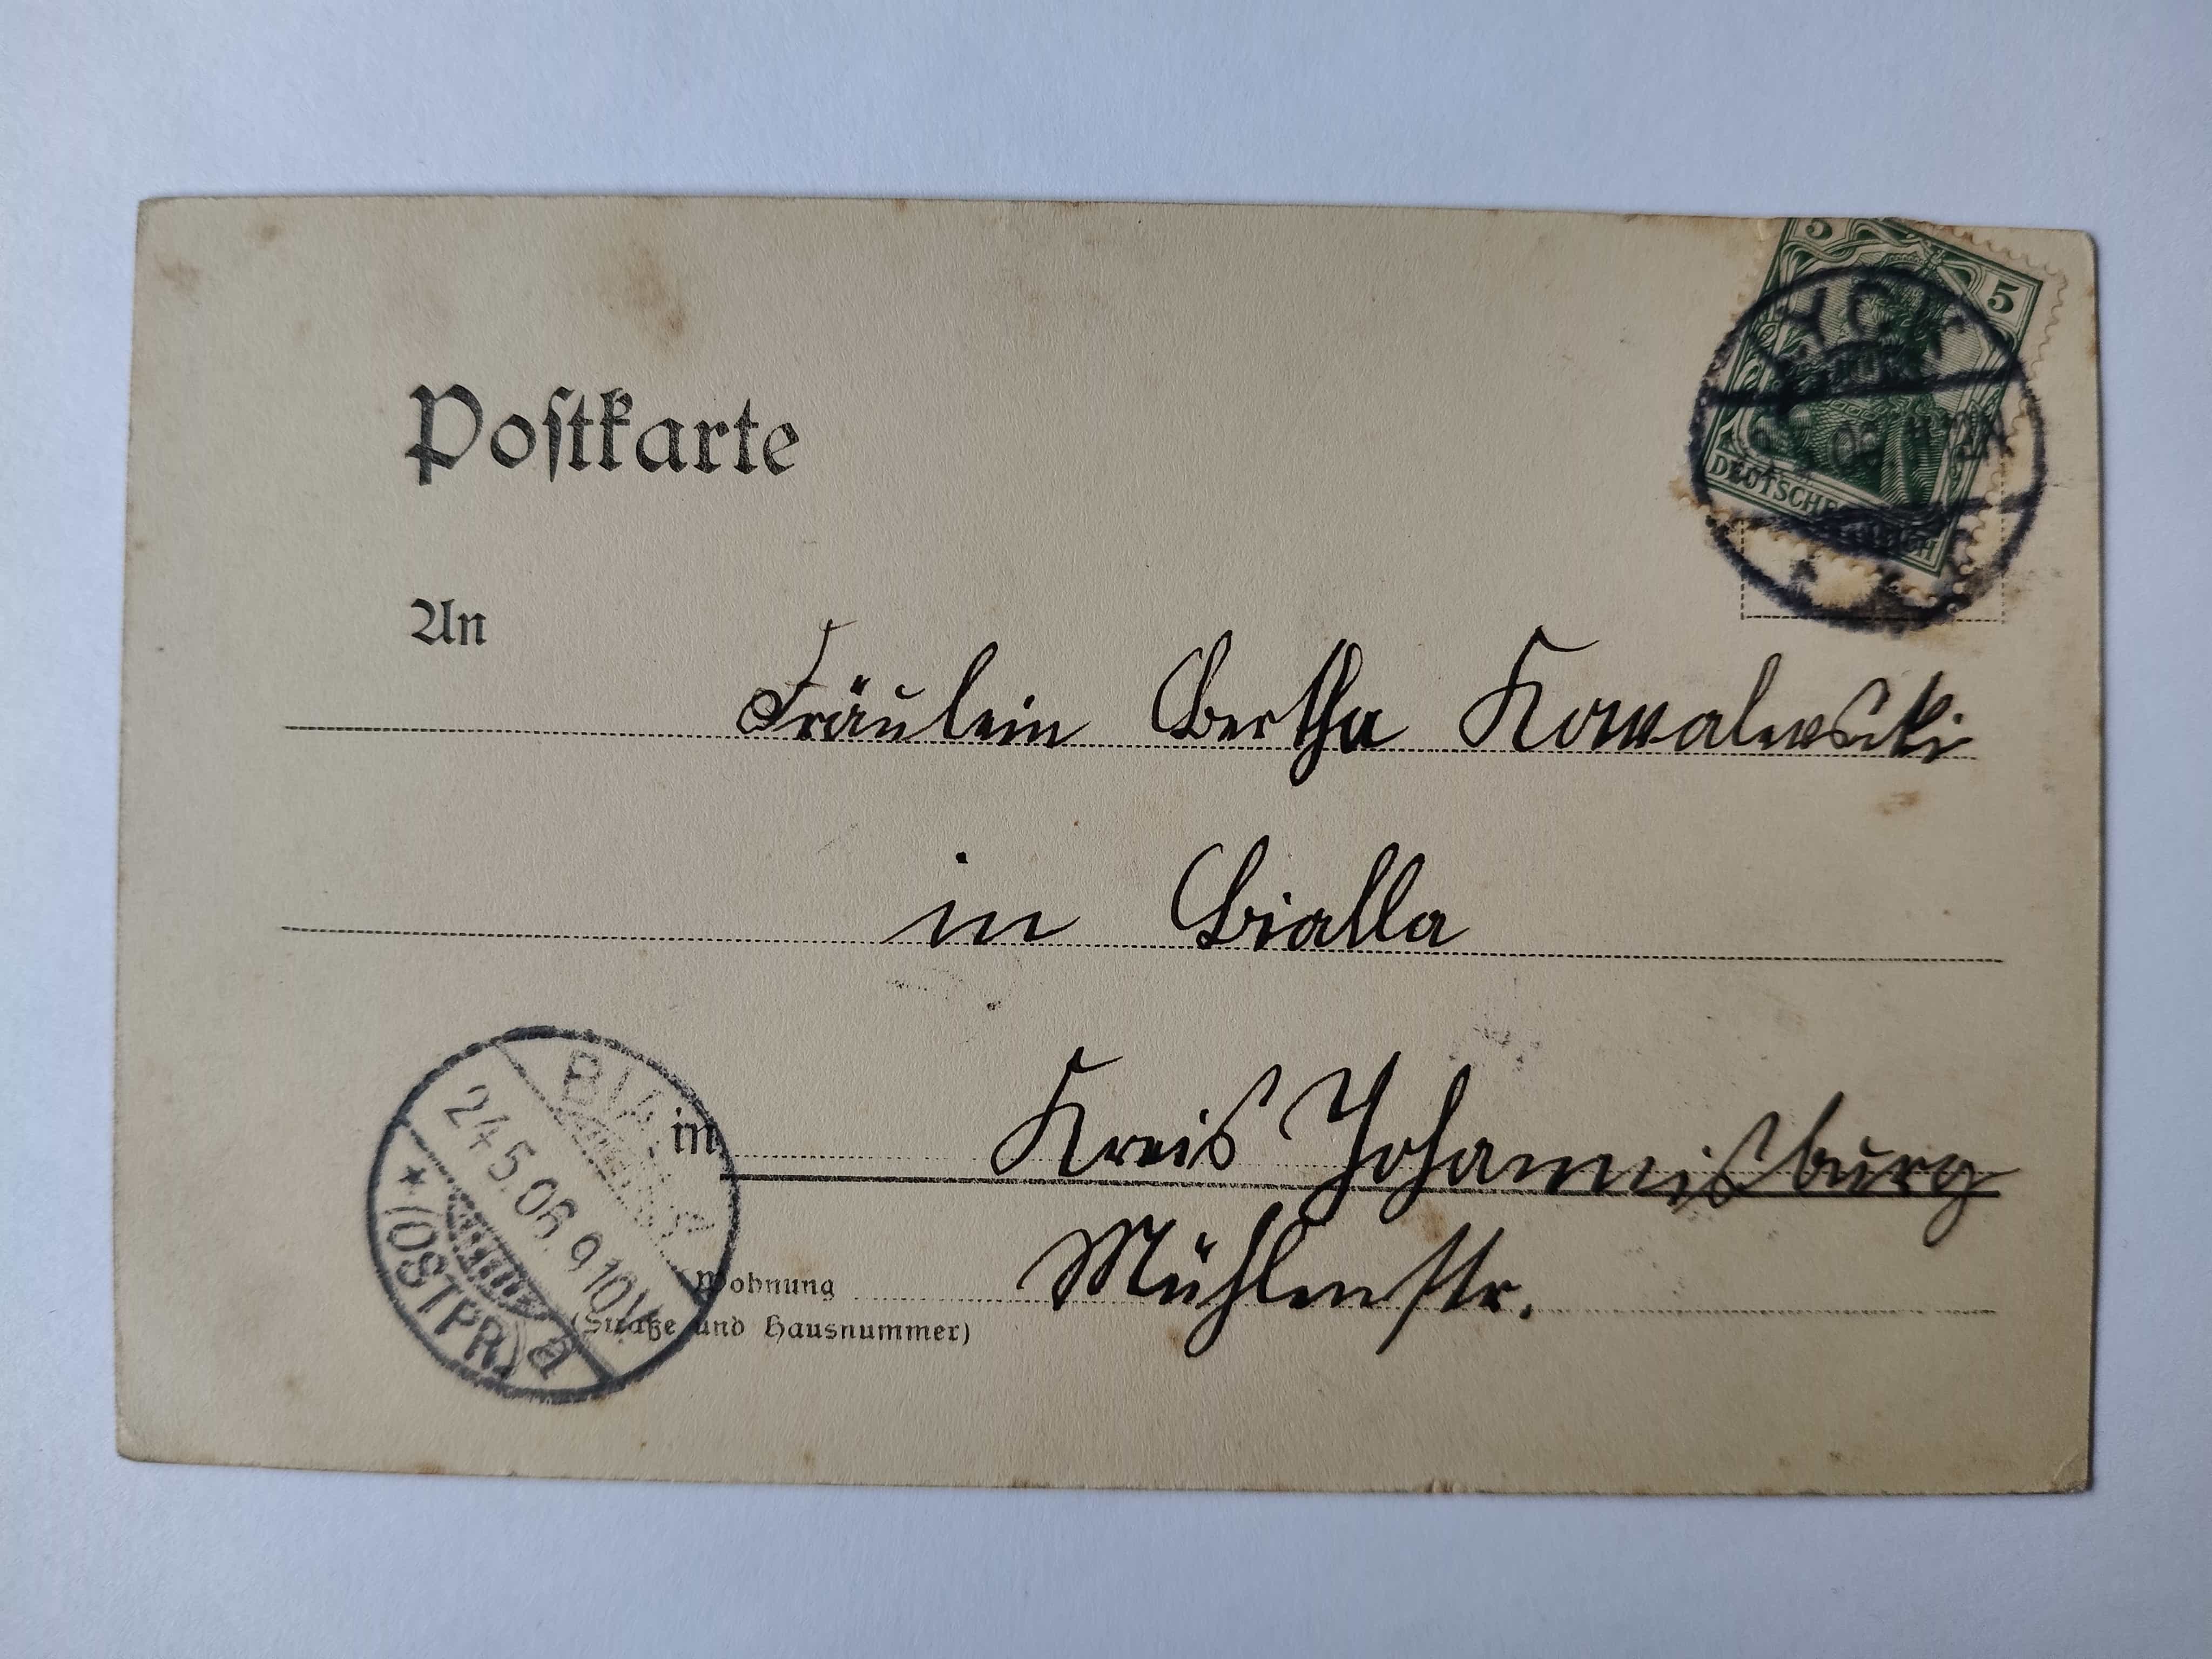 5 5
DEUTSCHES REICH
Postkarte
An
Fräulein Bertha Kowalewski
in Bialla
in Kreis Johannisburg
Wohnung Mühlenstr.
(Straße und Hausnummer)
BIALLA
24.5.06. 9 10V.
* (OSTPR) a